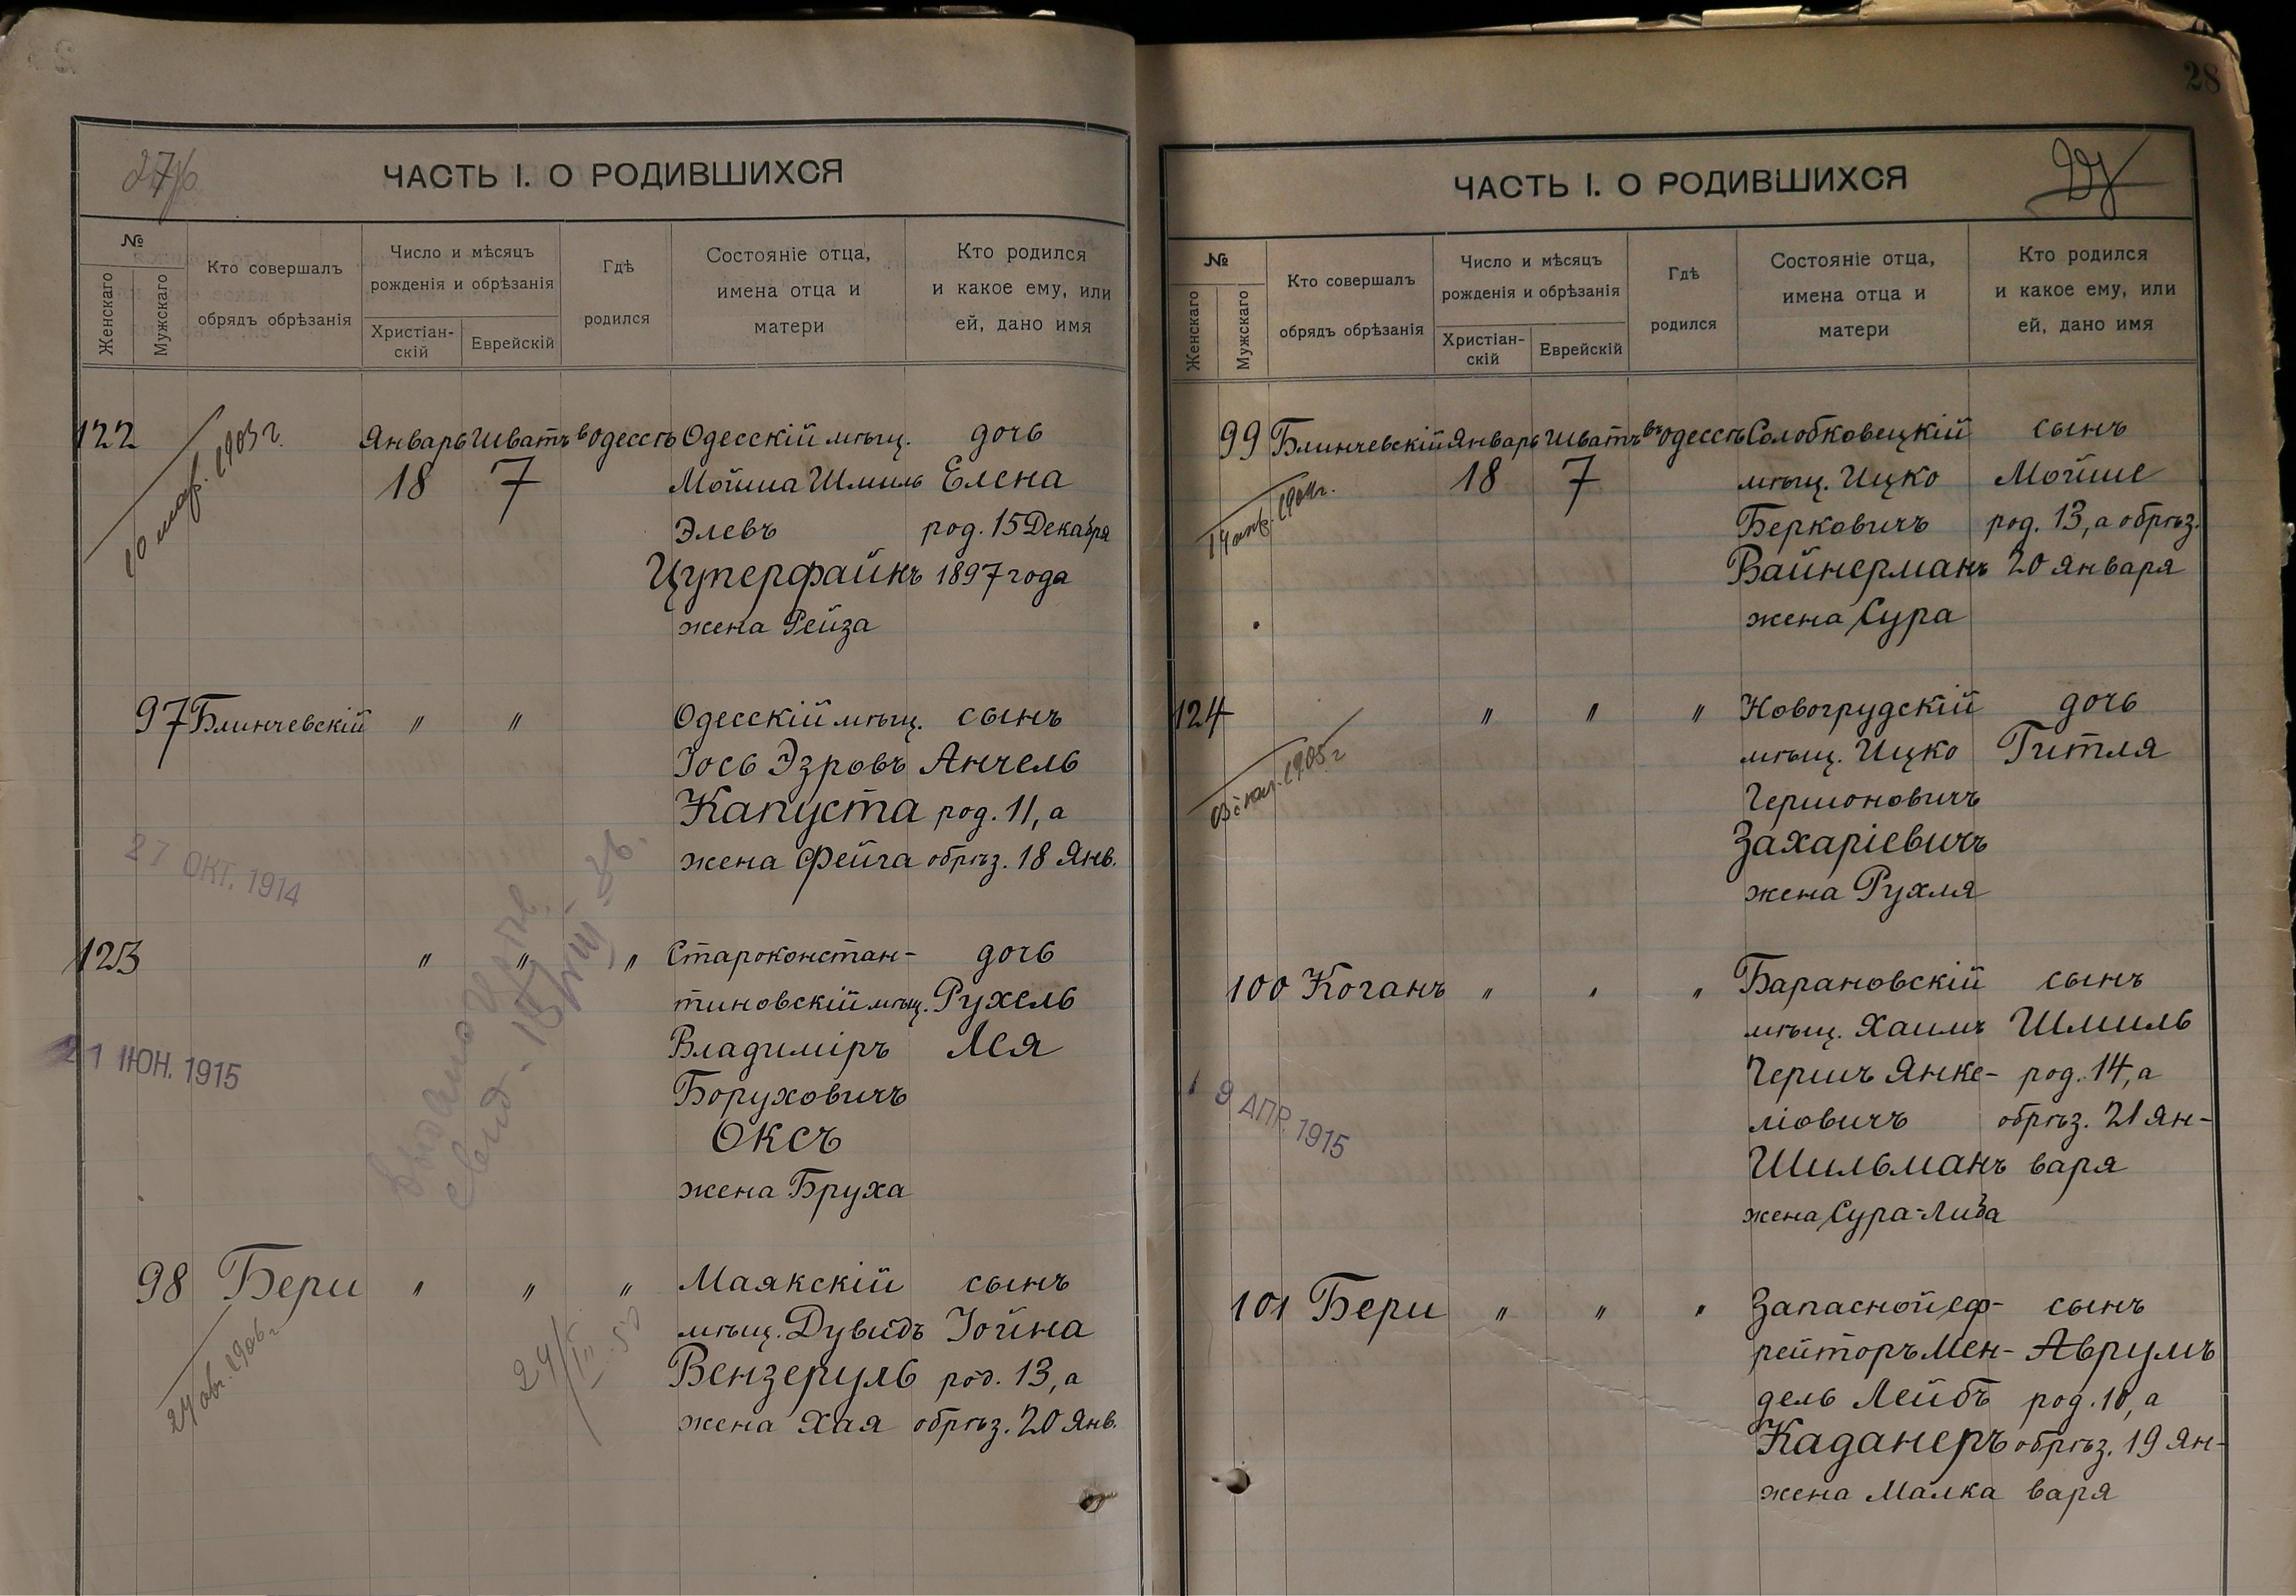 ЧАСТЬ I. О РОДИВШИХСЯ
№
Женскаго
Мужскаго
Кто совершалъ
обрядъ обрѣзанія
Число и мѣсяцъ
рожденія и обрѣзанія
Христіан-
скій
Еврейскій
Гдѣ
родился
Состояніе отца,
имена отца и
матери
Кто родился
и какое ему, или
ей, дано имя
122 Январь Шватъ въ Одессѣ Одесскій мѣщ. дочь
18 7 Мойша Шмиль Елена
Элевъ род. 15 Декабря
Цуперфайнъ 1897 года
жена Рейза
10 мар. 1903 г.
97 Блинчевскій " " Одесскій мѣщ. сынъ
Іось Эзровъ Анчель
Капуста род. 11, а
жена Фейга обрѣз. 18 Янв.
27 ОКТ. 1914
123 " " " Староконстан- дочь
тиновскій мѣщ. Рухель
Владиміръ Лея
Боруховичъ
Оксъ
жена Бруха
21 ІЮН. 1915
98 Бери " " " Маякскій сынъ
мѣщ. Дувидъ Іойна
Вензеруль род. 13, а
жена Хая обрѣз. 20 Янв.
24 авг. 1906 г
28
ЧАСТЬ I. О РОДИВШИХСЯ
27
№
Женскаго
Мужскаго
Кто совершалъ
обрядъ обрѣзанія
Число и мѣсяцъ
рожденія и обрѣзанія
Христіан-
скій
Еврейскій
Гдѣ
родился
Состояніе отца,
имена отца и
матери
Кто родился
и какое ему, или
ей, дано имя
99 Блинчевскій Январь Шватъ въ Одессѣ Солобковецкій сынъ
18 7 мѣщ. Ицко Мойше
Берковичъ род. 13, а обрѣз.
Вайнерманъ 20 января
жена Сура
124 " " " Новогрудскій дочь
мѣщ. Ицко Гитля
Гершоновичъ
Захаріевичъ
жена Рухля
100 Коганъ " " " Барановскій сынъ
мѣщ. Хаимъ Шмиль
Гершъ Янке- род. 14, а
ліовичъ обрѣз. 21 ян-
Шильманъ варя
жена Сура-Лиза
9 АПР. 1915
101 Бери " " " Запасной еф- сынъ
рейторъ Мен- Аврумъ
дель Лейбъ род. 10, а
Каданеръ обрѣз. 19 ян-
жена Малка варя